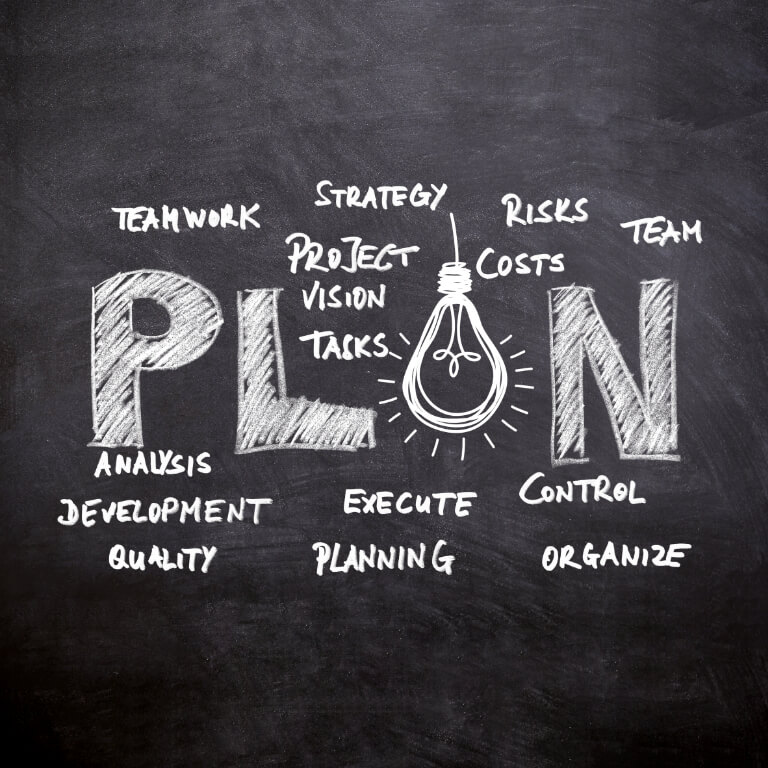 STRATEGY
TEAMWORK
RISKS
TEAM
PROJECT
COSTS
VISION
TASKS
PL N
ANALYSIS
DEVELOPMENT
EXECUTE
CONTROL
QUALITY
PLANNING
ORGANIZE